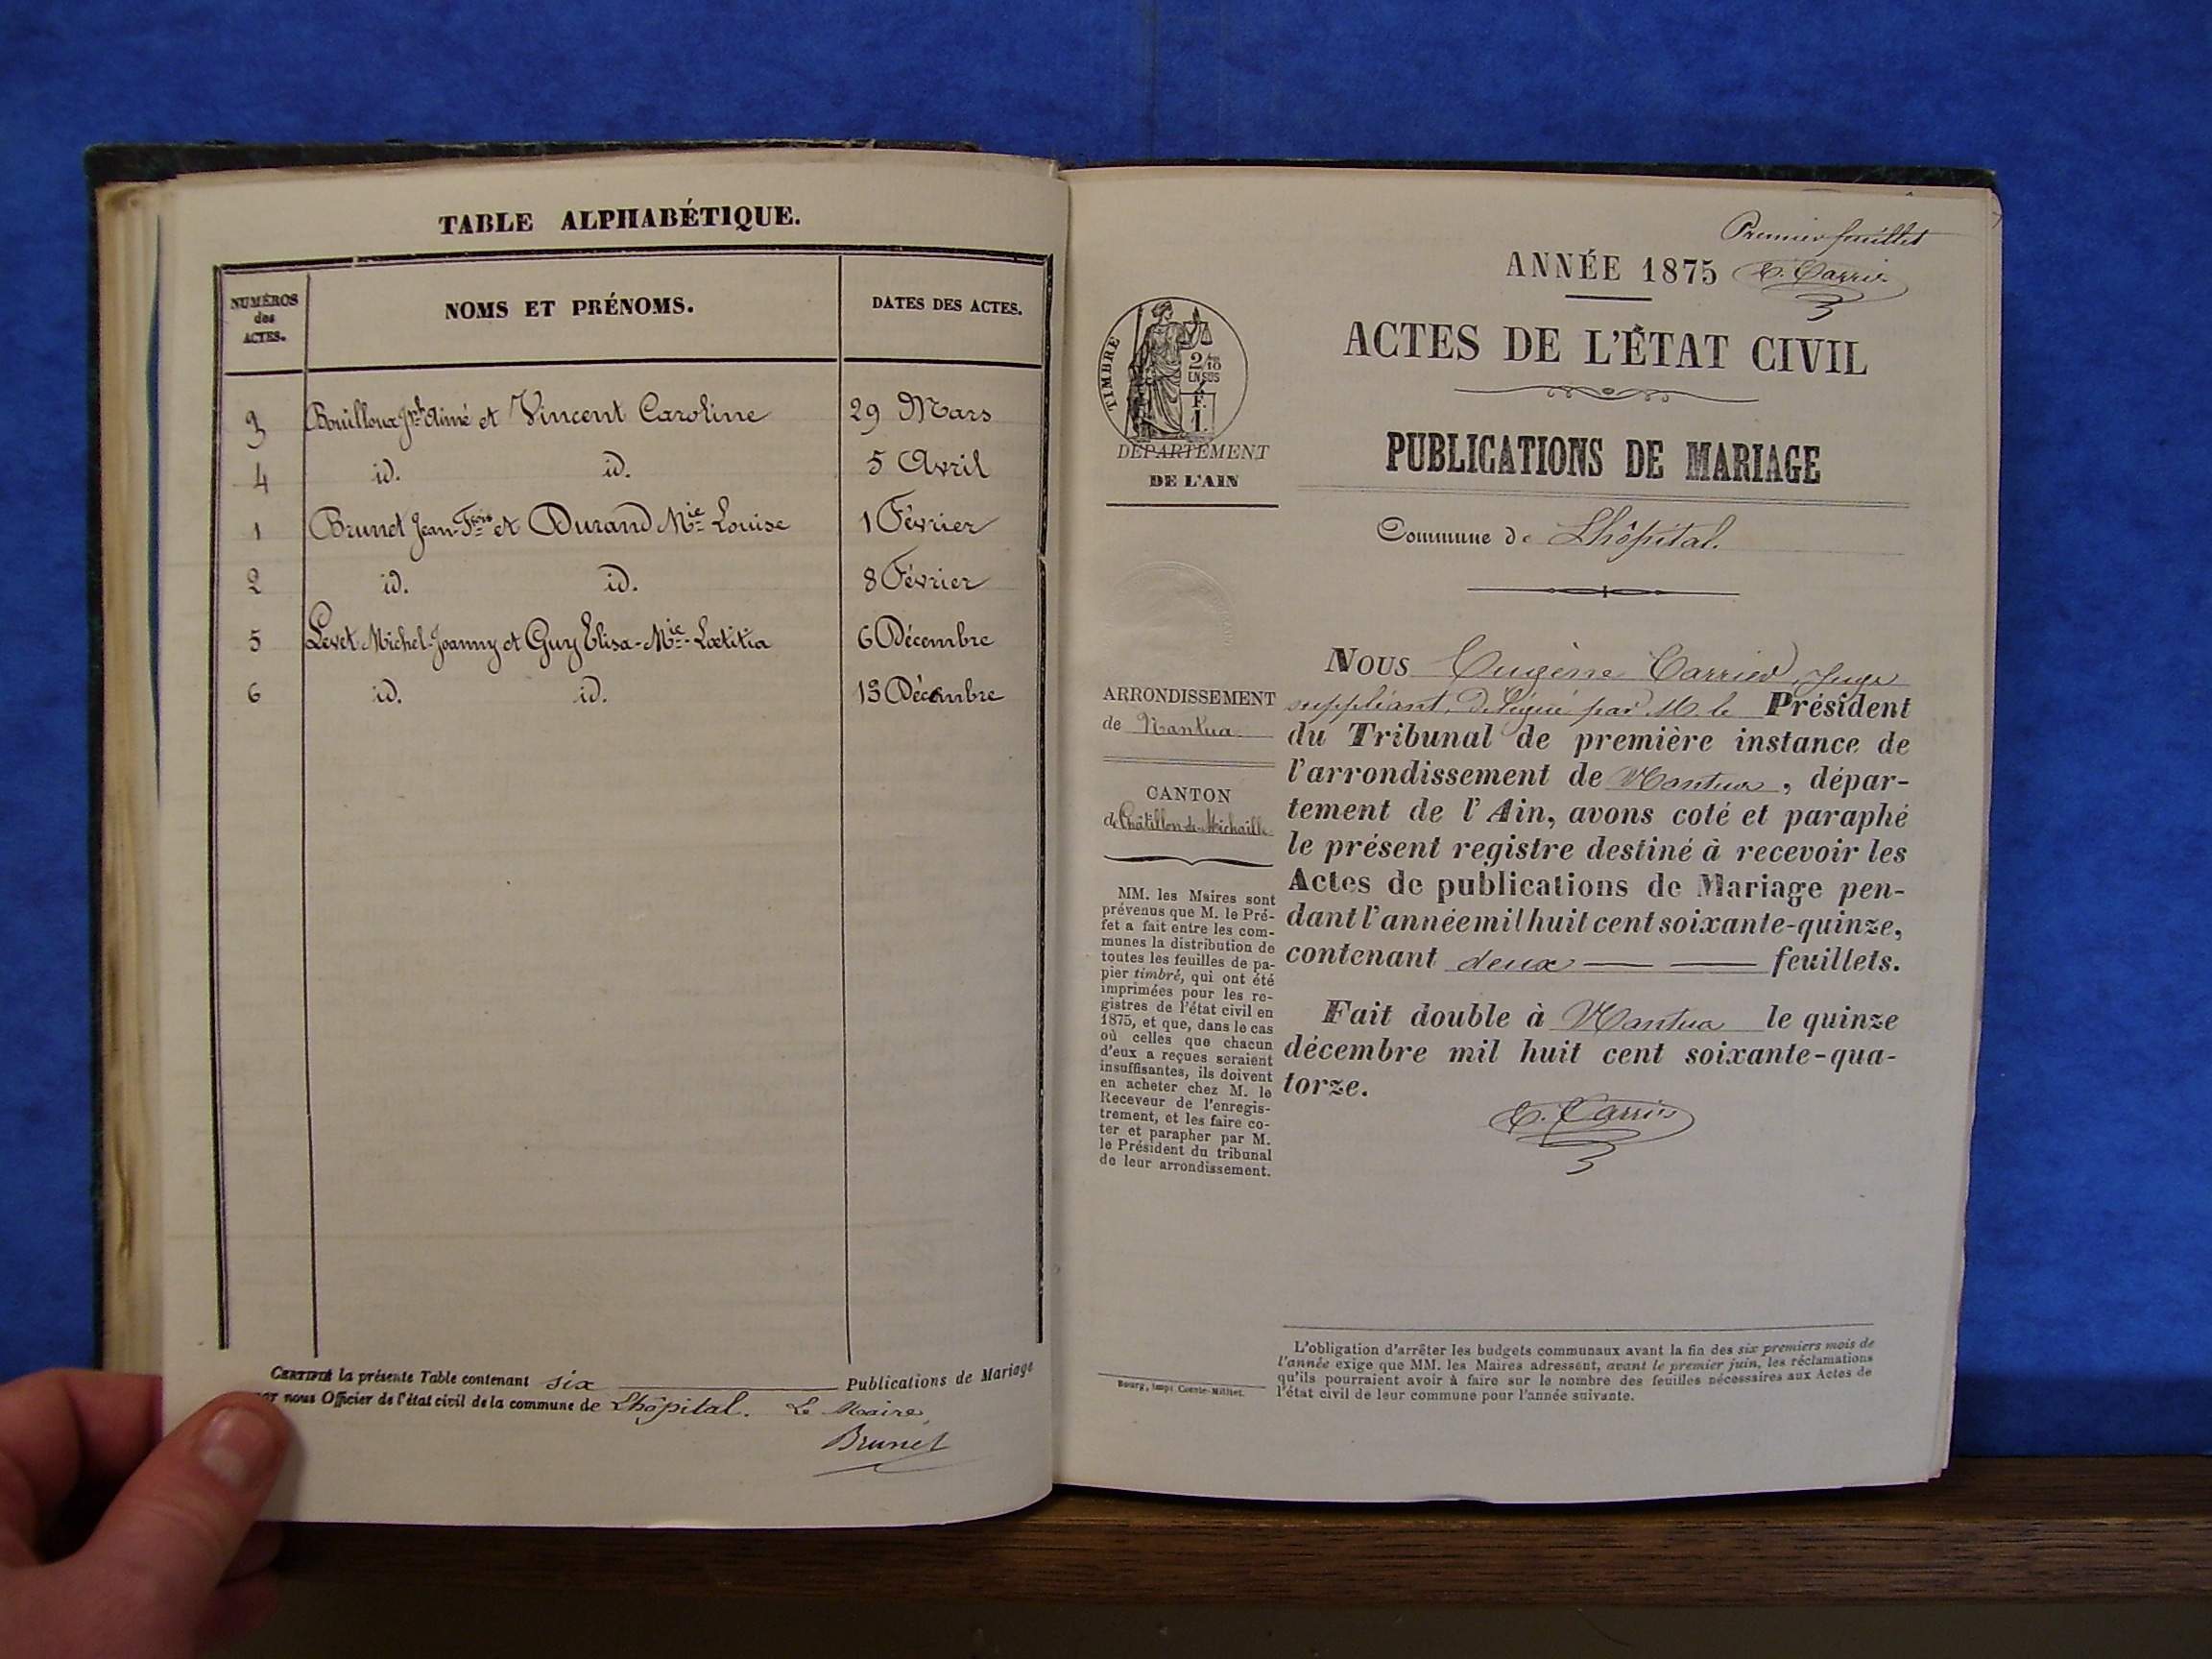 TABLE ALPHABÉTIQUE.
NUMÉROS des ACTES.
NOMS ET PRÉNOMS.
DATES DES ACTES.
3 Bouilloux Jph Aimé et Vincent Caroline 29 Mars
4 id. id. 5 Avril
1 Brunet Jean-Fçois et Durand Mie Louise 1 Février
2 id. id. 8 Février
5 Levet Michel-Joanny et Guy Elisa-Mie-Lætitia 6 Décembre
6 id. id. 13 Décembre
CERTIFIÉ la présente Table contenant six Publications de Mariage
nous Officier de l'état civil de la commune de Lhôpital. Le Maire,
Brunet
Premier feuillet
ANNÉE 1875 E. Carrier
ACTES DE L'ÉTAT CIVIL
PUBLICATIONS DE MARIAGE
Commune de Lhôpital.
TIMBRE
2/10
EN SUS
F.
1.
DÉPARTEMENT
DE L'AIN
ARRONDISSEMENT
de Nantua
CANTON
de Châtillon-de-Michaille
MM. les Maires sont
prévenus que M. le Pré-
fet a fait entre les com-
munes la distribution de
toutes les feuilles de pa-
pier timbré, qui ont été
imprimées pour les re-
gistres de l'état civil en
1875, et que, dans le cas
où celles que chacun
d'eux a reçues seraient
insuffisantes, ils doivent
en acheter chez M. le
Receveur de l'enregis-
trement, et les faire co-
ter et parapher par M.
le Président du tribunal
de leur arrondissement.
Nous Eugène Carrier, Juge
suppléant, délégué par M. le Président
du Tribunal de première instance de
l'arrondissement de Nantua, dépar-
tement de l'Ain, avons coté et paraphé
le présent registre destiné à recevoir les
Actes de publications de Mariage pen-
dant l'année mil huit cent soixante-quinze,
contenant deux feuillets.
Fait double à Nantua le quinze
décembre mil huit cent soixante-qua-
torze.
E. Carrier
L'obligation d'arrêter les budgets communaux avant la fin des six premiers mois de
l'année exige que MM. les Maires adressent, avant le premier juin, les réclamations
qu'ils pourraient avoir à faire sur le nombre des feuilles nécessaires aux Actes de
l'état civil de leur commune pour l'année suivante.
Bourg, imp. Comte-Milliet.